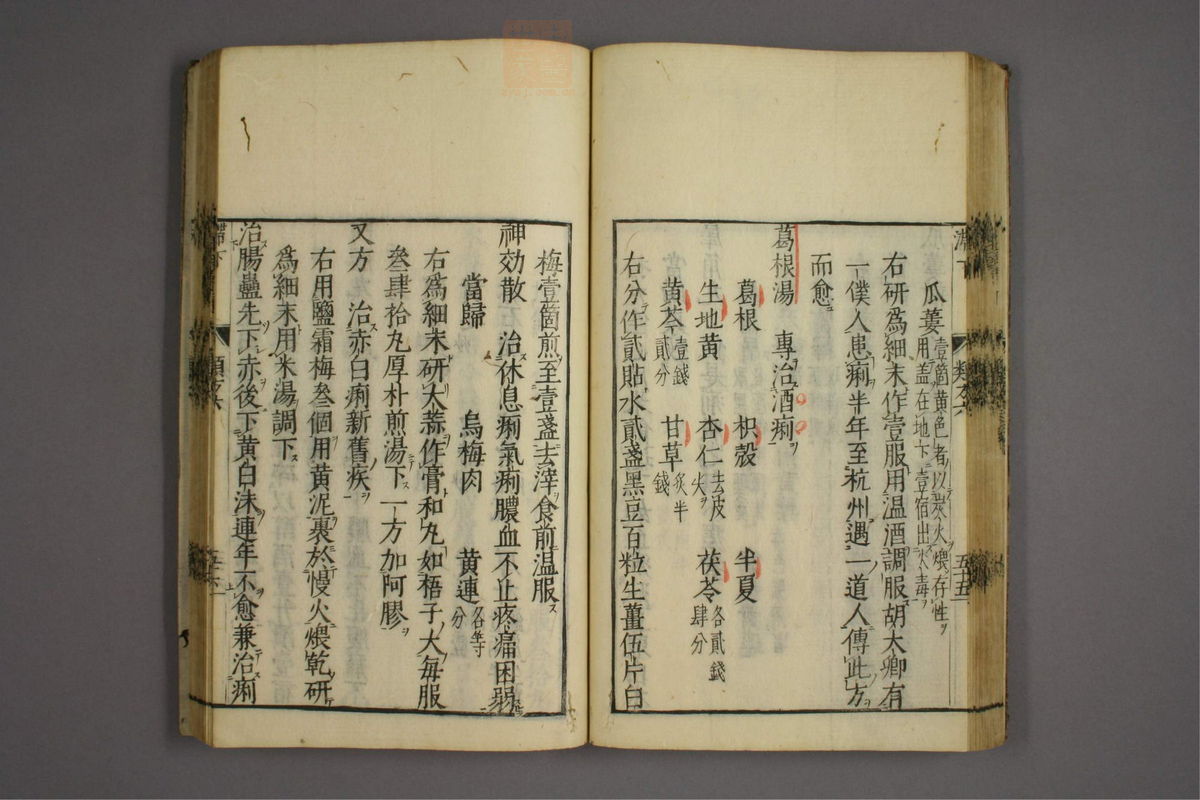 瓜蔞壹箇黄色者以炭火煨存性
用盖在地下壹宿出火毒
右研爲細末作壹服用温酒調服胡大卿有
一僕人患痢半年至杭州遇一道人傳此方
而愈
葛根湯　專治酒痢
葛根　枳殼　半夏
生地黄　杏仁去皮尖　茯苓各貳錢肆分
黄芩壹錢貳分　甘草炙半錢
右分作貳貼水貳盞黑豆百粒生薑伍片白
梅壹箇煎至壹盞去滓食前温服
神効散　治休息痢氣痢膿血不止疼痛困弱
當歸　烏梅肉　黄連各等分
右爲細末研大蒜作膏和丸如梧子大每服
叄肆拾丸厚朴煎湯下一方加阿膠
又方　治赤白痢新舊疾
右用鹽霜梅叄個用黄泥裹於慢火煨乾研
爲細末用米湯調下
治腸蠱先下赤後下黄白沫連年不愈兼治痢